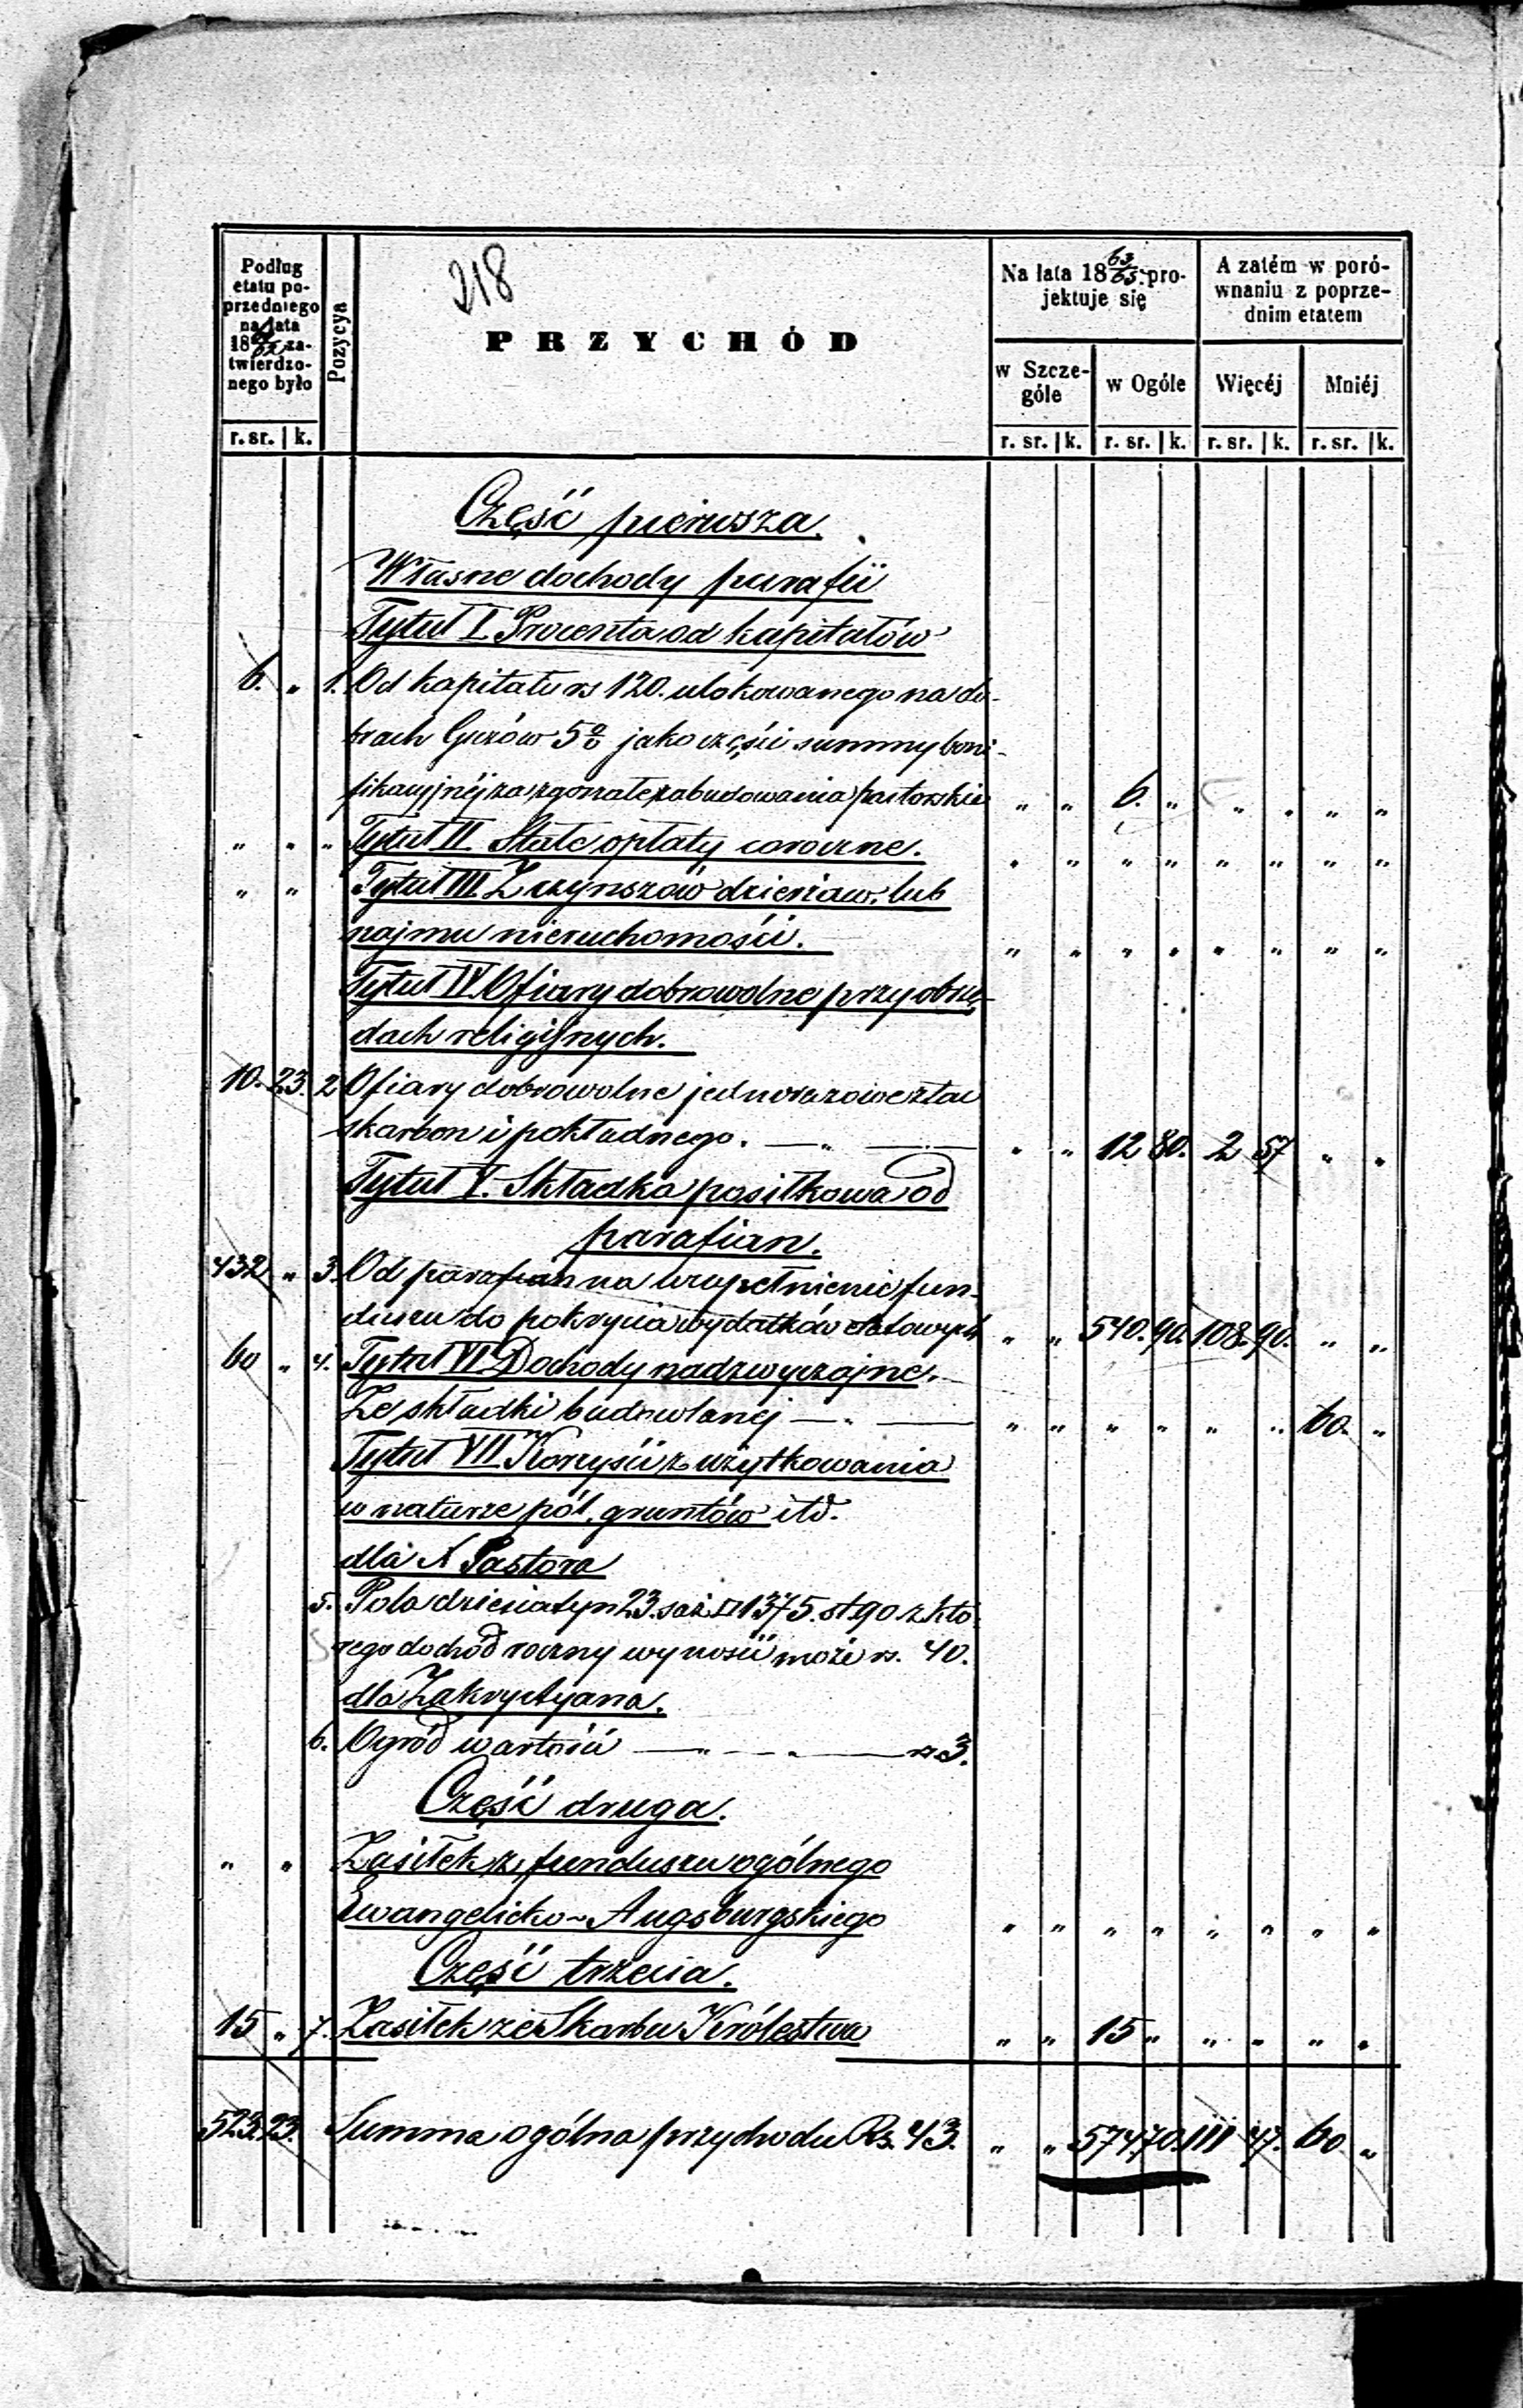 218
Podług etatu poprzedniego na lata 18 62 zatwierdzonego było
Pozycya
PRZYCHÓD
Na lata 18 63/65 projektuje się
A zatém w porównaniu z poprzednim etatem
w Szczególe
w Ogóle
Więcéj
Mniéj
r. sr. k. r. sr. k. r. sr. k. r. sr. k. r. sr. k.
Część pierwsza.
Własne dochody parafii
Tytuł I. Procenta od kapitałów
6. „ 1. Od kapitału rs 120. ulokowanego na do-
brach Guzów 5% jako części summy boni-
fikacyjnéj za zgorzałe zabudowania pastorskie „ „ 6. „ „ „ „ „
„ „ „ Tytuł II. Stałe opłaty coroczne. „ „ „ „ „ „ „ „
„ „ Tytuł III. Z czynszów dzierżaw, lub
najmu nieruchomości. „ „ „ „ „ „ „ „
Tytuł IV. Ofiary dobrowolne przy obrzę-
dach religijnych.
10. 23. 2 Ofiary dobrowolne jednorazowe z tac
skarbon i pokładnego. „ „ 12 80. 2 57 „ „
Tytuł V. Składka posiłkowa od
parafian.
432 „ 3. Od parafian na uzupełnienie fun-
duszu do pokrycia wydatków etatowych „ „ 540. 90. 108. 90. „ „
60 „ 4. Tytuł VI. Dochody nadzwyczajne.
Ze składki budowlanej „ „ „ „ „ „ 60. „
Tytuł VII. Korzyści z użytkowania
w naturze pól, gruntów itd.
dla X Pastora
5. Pola dziesiatyn 23. saż. □ 1375. st. 90. z któ-
rego dochód roczny wynosić może rs. 40.
dla Zakrystyana.
6. Ogród wartości rs 3.
Część druga.
„ „ Zasiłek z funduszu ogólnego
Ewangelicko-Augsburgskiego „ „ „ „ „ „ „ „
Część trzecia.
15 „ 7. Zasiłek ze Skarbu Królestwa „ „ 15 „ „ „ „ „
523. 23. Summa ogólna przychodu Rs. 43. „ „ 574 70. 111 47. 60 „